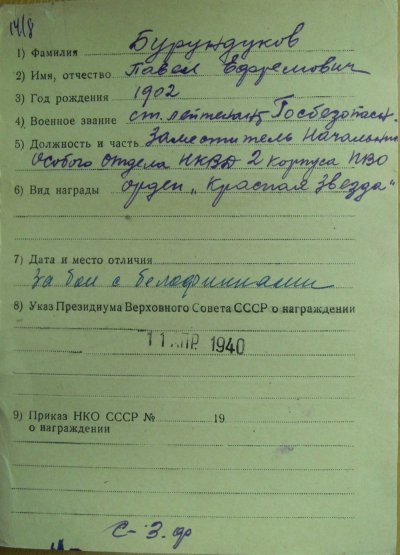 14/8
1) Фамилия Бурундуков
2) Имя, отчество Павел Ефремович
3) Год рождения 1902
4) Военное звание ст. лейтенант Госбезопасн.
5) Должность и часть Заместитель Начальника
Особого Отдела НКВД 2 корпуса ПВО
6) Вид награды орден „Красная Звезда"
7) Дата и место отличия
За бои с белофиннами
8) Указ Президиума Верховного Совета СССР о награждении
11 АПР 1940
9) Приказ НКО СССР № 19
о награждении